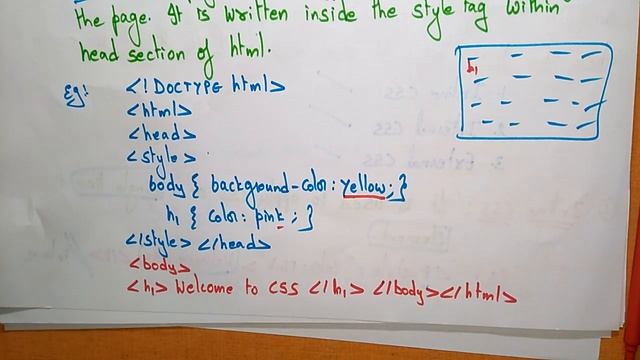 the page. It is written inside the style tag within
head section of html.
Eg:
<!DOCTYPE html>
<html>
<head>
<style>
body { background-color: yellow; }
h1 { color: pink ; }
</style> </head>
<body>
<h1> Welcome to CSS </h1> </body></html>
h1